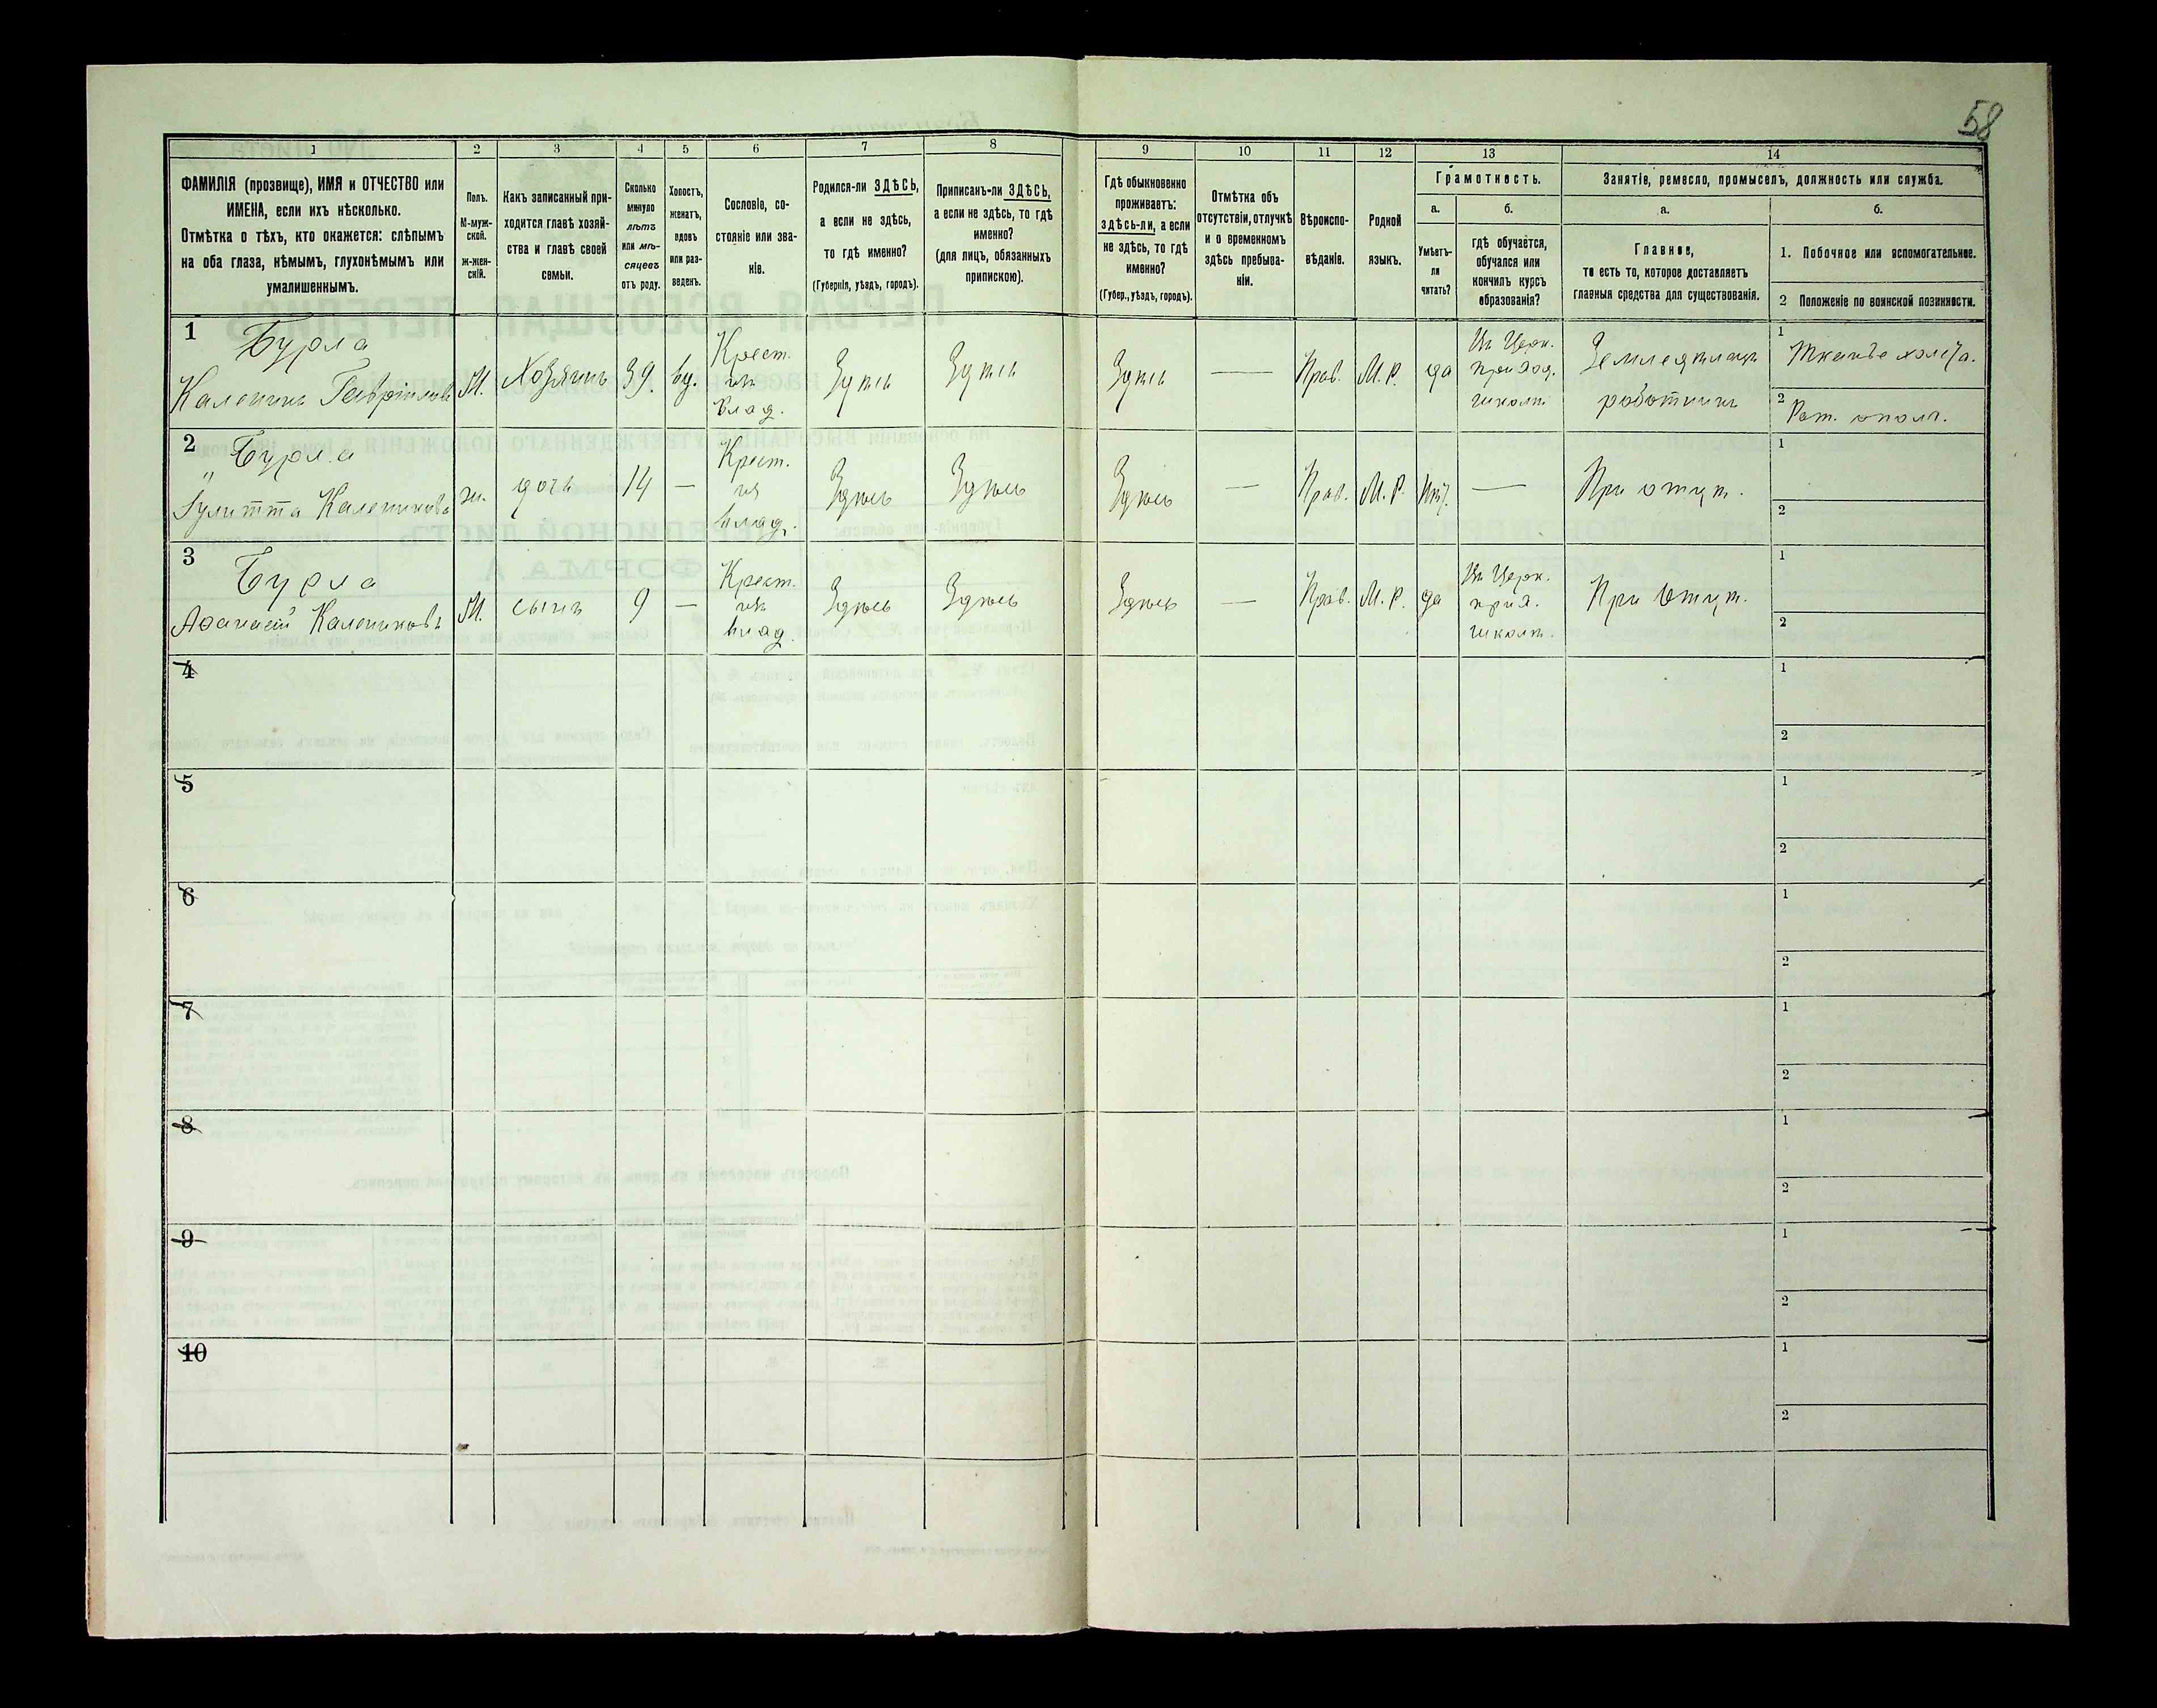 58
1
2
3
4
5
6
7
8
9
10
11
12
13
14
ФАМИЛІЯ (прозвище), ИМЯ и ОТЧЕСТВО или
ИМЕНА, если ихъ нѣсколько.
Отмѣтка о тѣхъ, кто окажется: слѣпымъ
на оба глаза, нѣмымъ, глухонѣмымъ или
умалишеннымъ.
Полъ.
М-муж-
ской.
ж-жен-
скій.
Какъ записанный при-
ходится главѣ хозяй-
ства и главѣ своей
семьи.
Сколько
минуло
лѣтъ
или мѣ-
сяцевъ
отъ роду.
Холостъ,
женатъ,
вдовъ
или раз-
веденъ.
Сословіе, со-
стояніе или зва-
ніе.
Родился-ли ЗДѢСЬ,
а если не здѣсь,
то гдѣ именно?
(Губернія, уѣздъ, городъ).
Приписанъ-ли ЗДѢСЬ,
а если не здѣсь, то гдѣ
именно?
(для лицъ, обязанныхъ
припискою).
Гдѣ обыкновенно
проживаетъ:
здѣсь-ли, а если
не здѣсь, то гдѣ
именно?
(Губер., уѣздъ, городъ).
Отмѣтка объ
отсутствіи, отлучкѣ
и о временномъ
здѣсь пребыва-
ніи.
Вѣроиспо-
вѣданіе.
Родной
языкъ.
Грамотность.
а.
Умѣетъ-
ли
читать?
б.
гдѣ обучается,
обучался или
кончилъ курсъ
образованія?
Занятіе, ремесло, промыселъ, должность или служба.
а.
Главное,
то есть то, которое доставляетъ
главныя средства для существованія.
б.
1. Побочное или вспомогательное.
2 Положеніе по воинской повинности.
1
Бурла
Каленикъ Гавріиловъ
М.
Хозяинъ
39.
вд.
Крест.
изъ
влад.
Здѣсь
Здѣсь
Здѣсь
—
Прав.
М. Р.
да
Въ Церк.
приход.
школѣ
Земледѣлецъ
работникъ
1
Тканье холста.
2
Рат. ополч.
2
Бурла
Іулитта Каленикова
ж.
дочь
14
—
Крест.
изъ
влад.
Здѣсь
Здѣсь
Здѣсь
—
Прав.
М. Р.
нѣт.
—
При отцѣ.
1
2
3
Бурла
Аѳанасій Калениковъ
М.
сынъ
9
—
Крест.
изъ
влад.
Здѣсь
Здѣсь
Здѣсь
—
Прав.
М. Р.
да
Въ Церк.
прих.
школѣ.
При отцѣ.
1
2
4
1
2
5
1
2
6
1
2
7
1
2
8
1
2
9
1
2
10
1
2